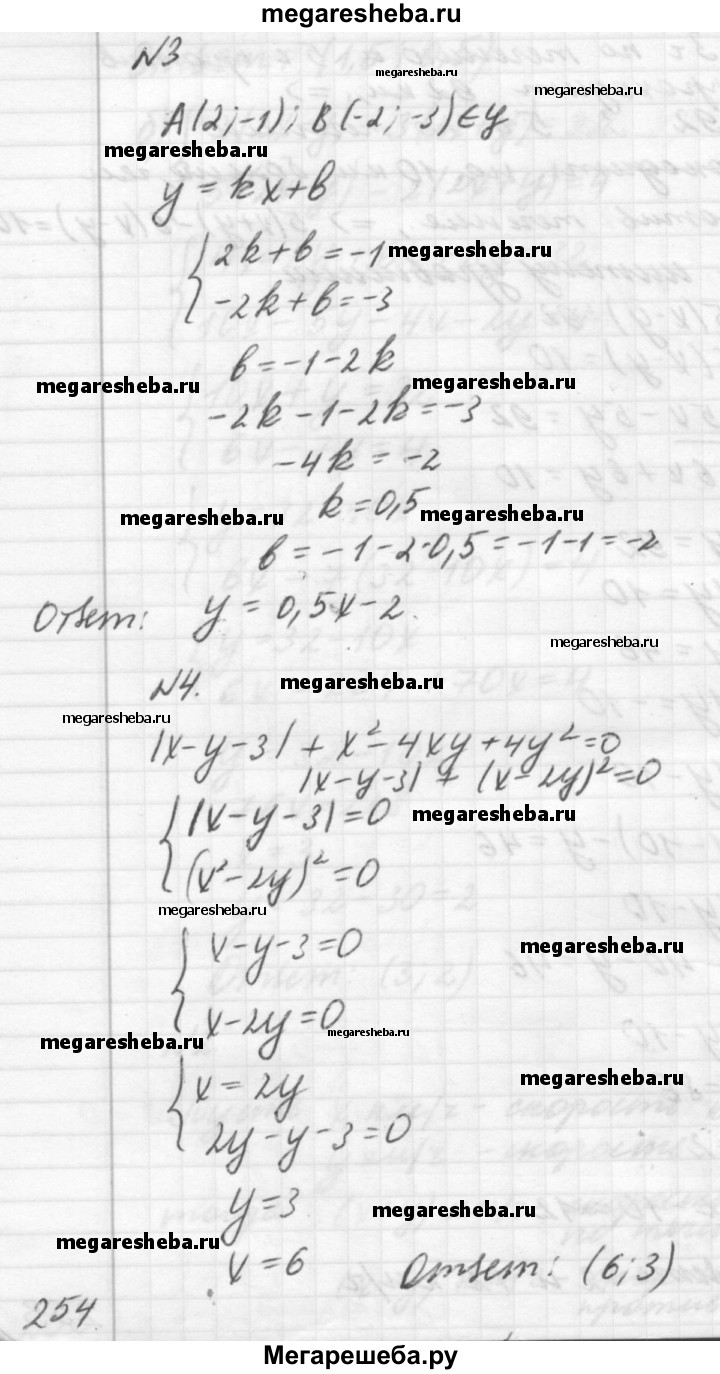 megaresheba.ru
№3
megaresheba.ru
megaresheba.ru
A(2;-1); B(-2;-3)∈y
megaresheba.ru
y=kx+b
{2k+b=-1
megaresheba.ru
-2k+b=-3
b=-1-2k
megaresheba.ru
megaresheba.ru
-2k-1-2k=-3
-4k=-2
k=0,5
megaresheba.ru
megaresheba.ru
b=-1-2·0,5=-1-1=-2
Ответ: y=0,5x-2.
megaresheba.ru
№4.
megaresheba.ru
megaresheba.ru
|x-y-3|+x²-4xy+4y²=0
|x-y-3|+(x-2y)²=0
{|x-y-3|=0
megaresheba.ru
(x²-2y)²=0
megaresheba.ru
{x-y-3=0
megaresheba.ru
x-2y=0
megaresheba.ru
megaresheba.ru
{x=2y
megaresheba.ru
2y-y-3=0
y=3
megaresheba.ru
megaresheba.ru
x=6 Ответ: (6;3)
254
Мегарешеба.ру